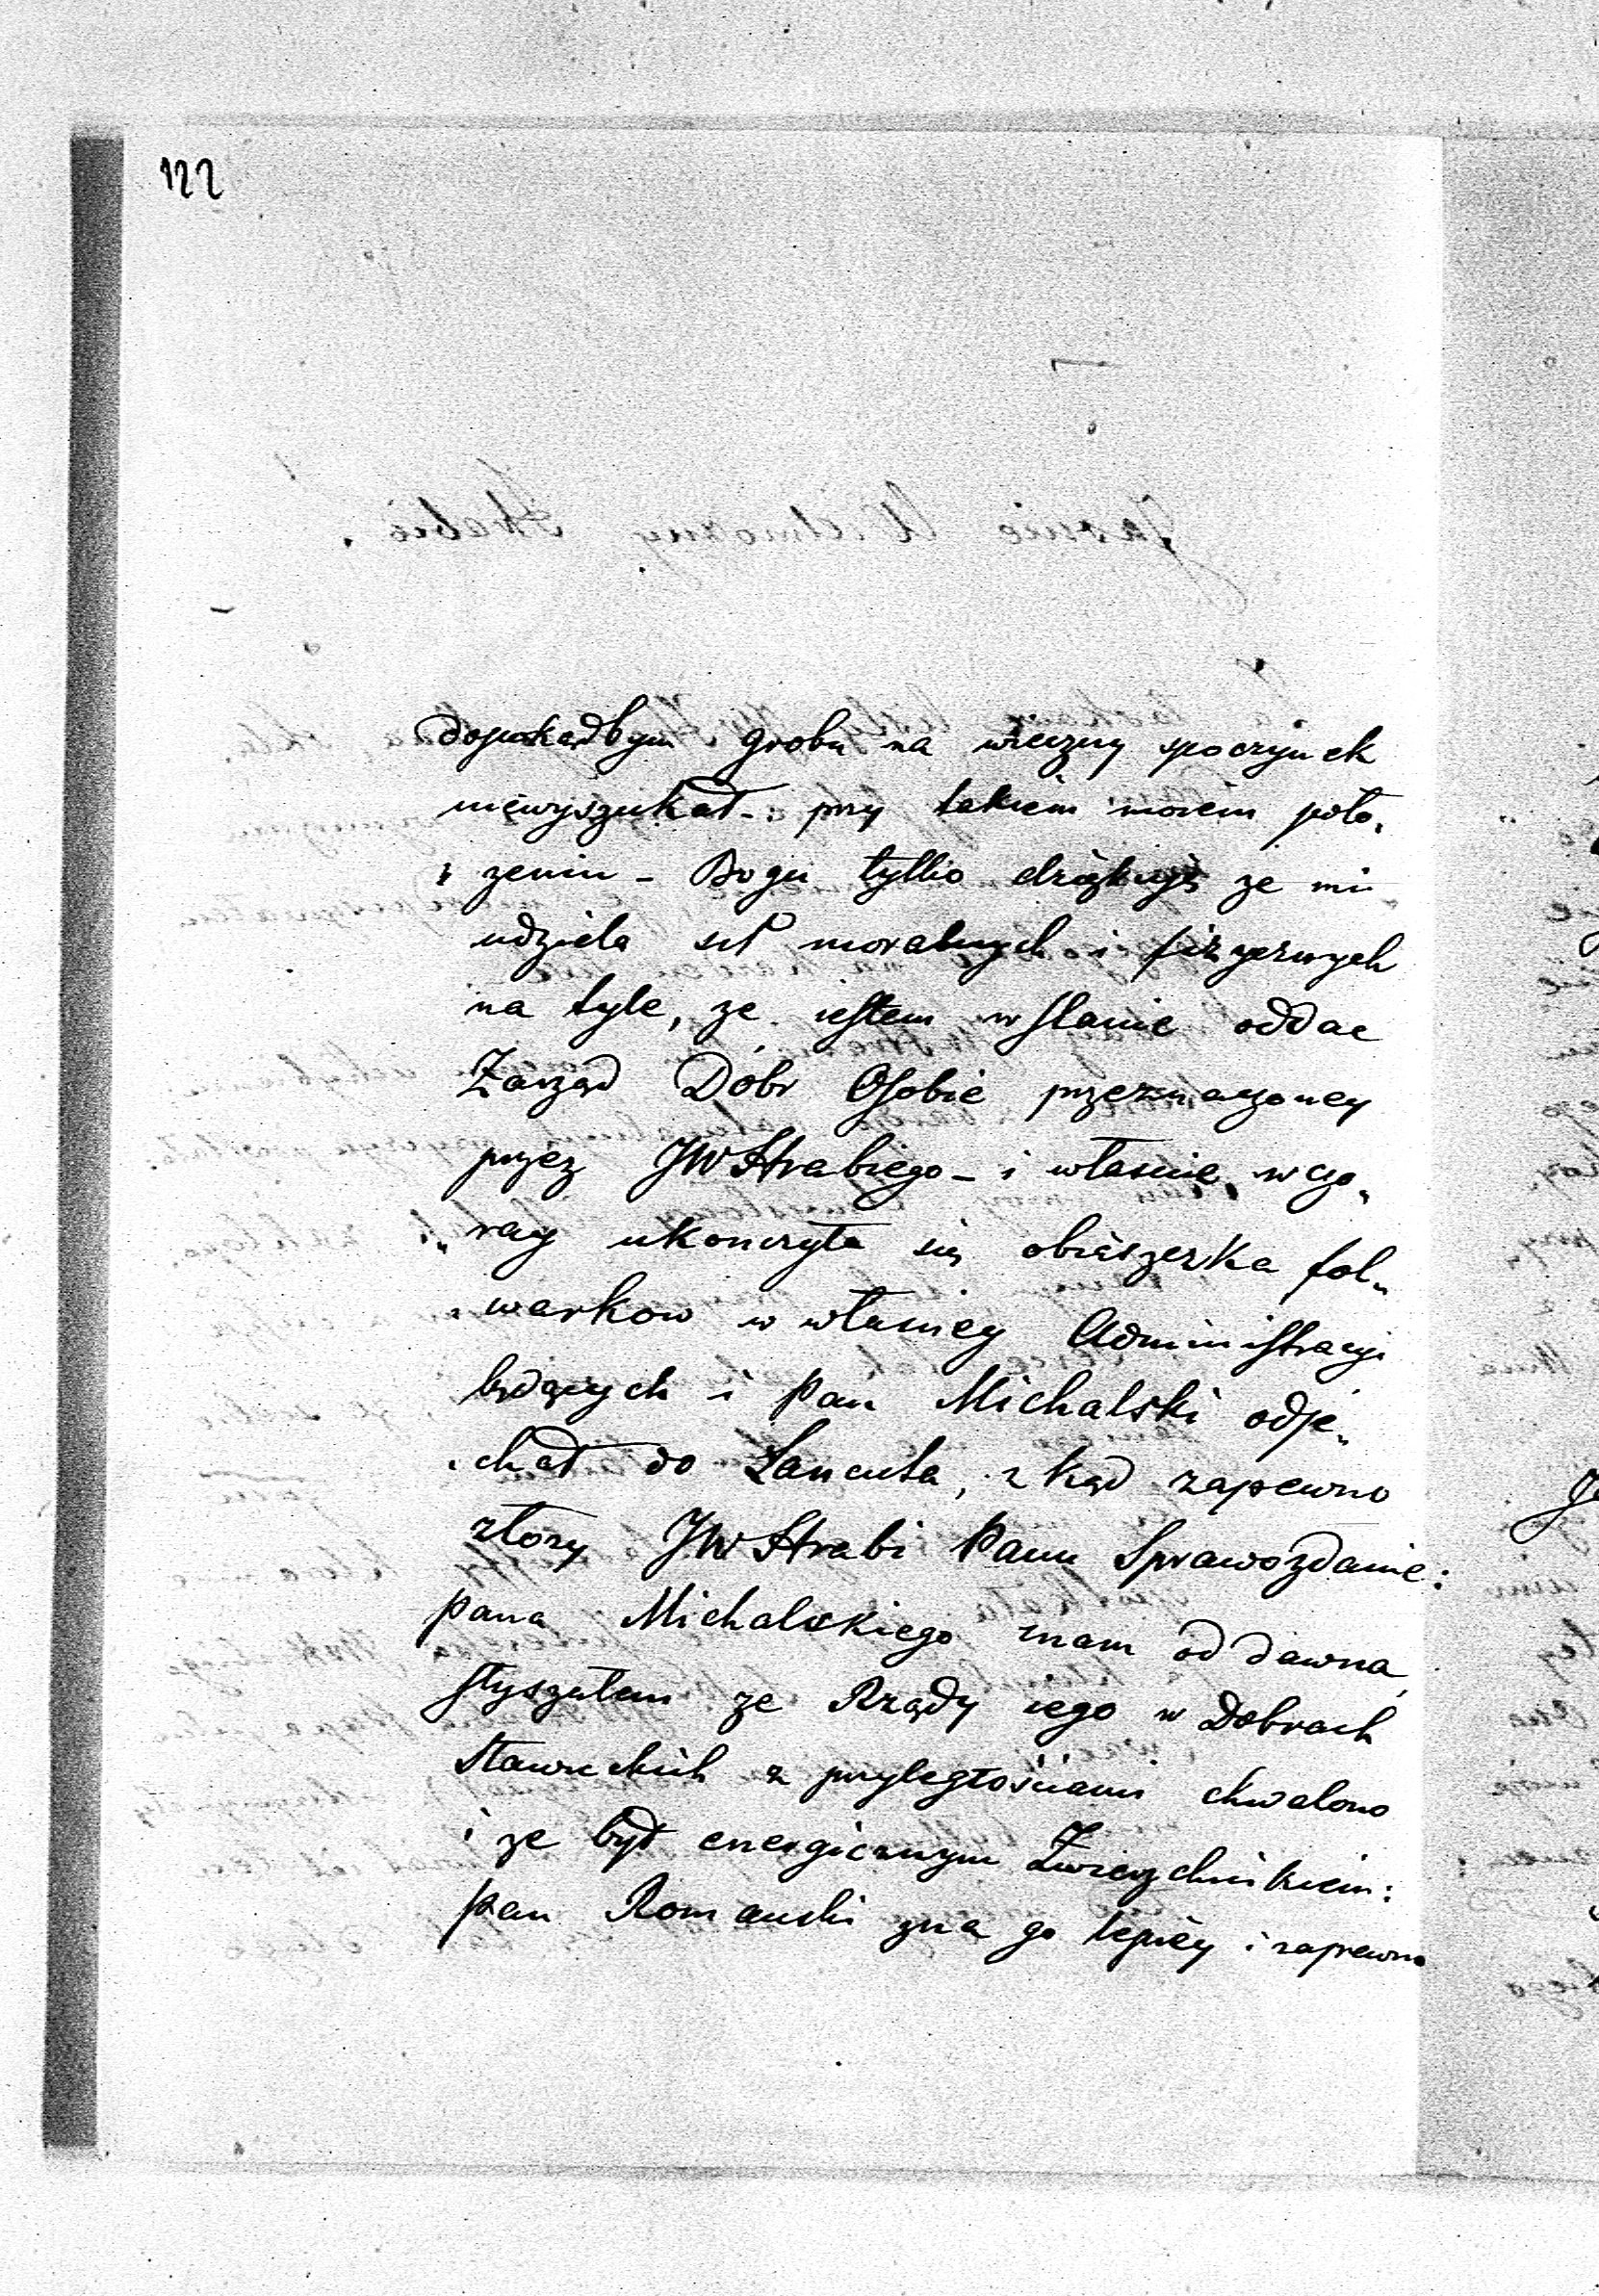 122
dopokądbym grobu na wieczny spoczynek
niewyszukał - przy takiem moiem poło„
„zeniu - Bogu tylko dziękuję ze mi
udziela sił moralnych i fizycznych
na tyle, ze iestem w stanie oddac
Zarząd Dóbr Osobie przeznaczoney
przez JWHrabiego - i własnie wczo„
„ray ukonczyła się obieszczka fol„
„warkow w własney Administracyi
będących i Pan Michalski odje„
„chał do Łancuta, zkąd zapewno
złozy JWHrabi Panu Sprawozdanie:
Pana Michalskiego znam od dawna,
słyszałem ze Rządy iego w Dobrach
Sławuckich z przyległościami chwalono
i ze był energicznym Zwierzchnikiem:
Pan Romanski zna go lepiey i zapewno